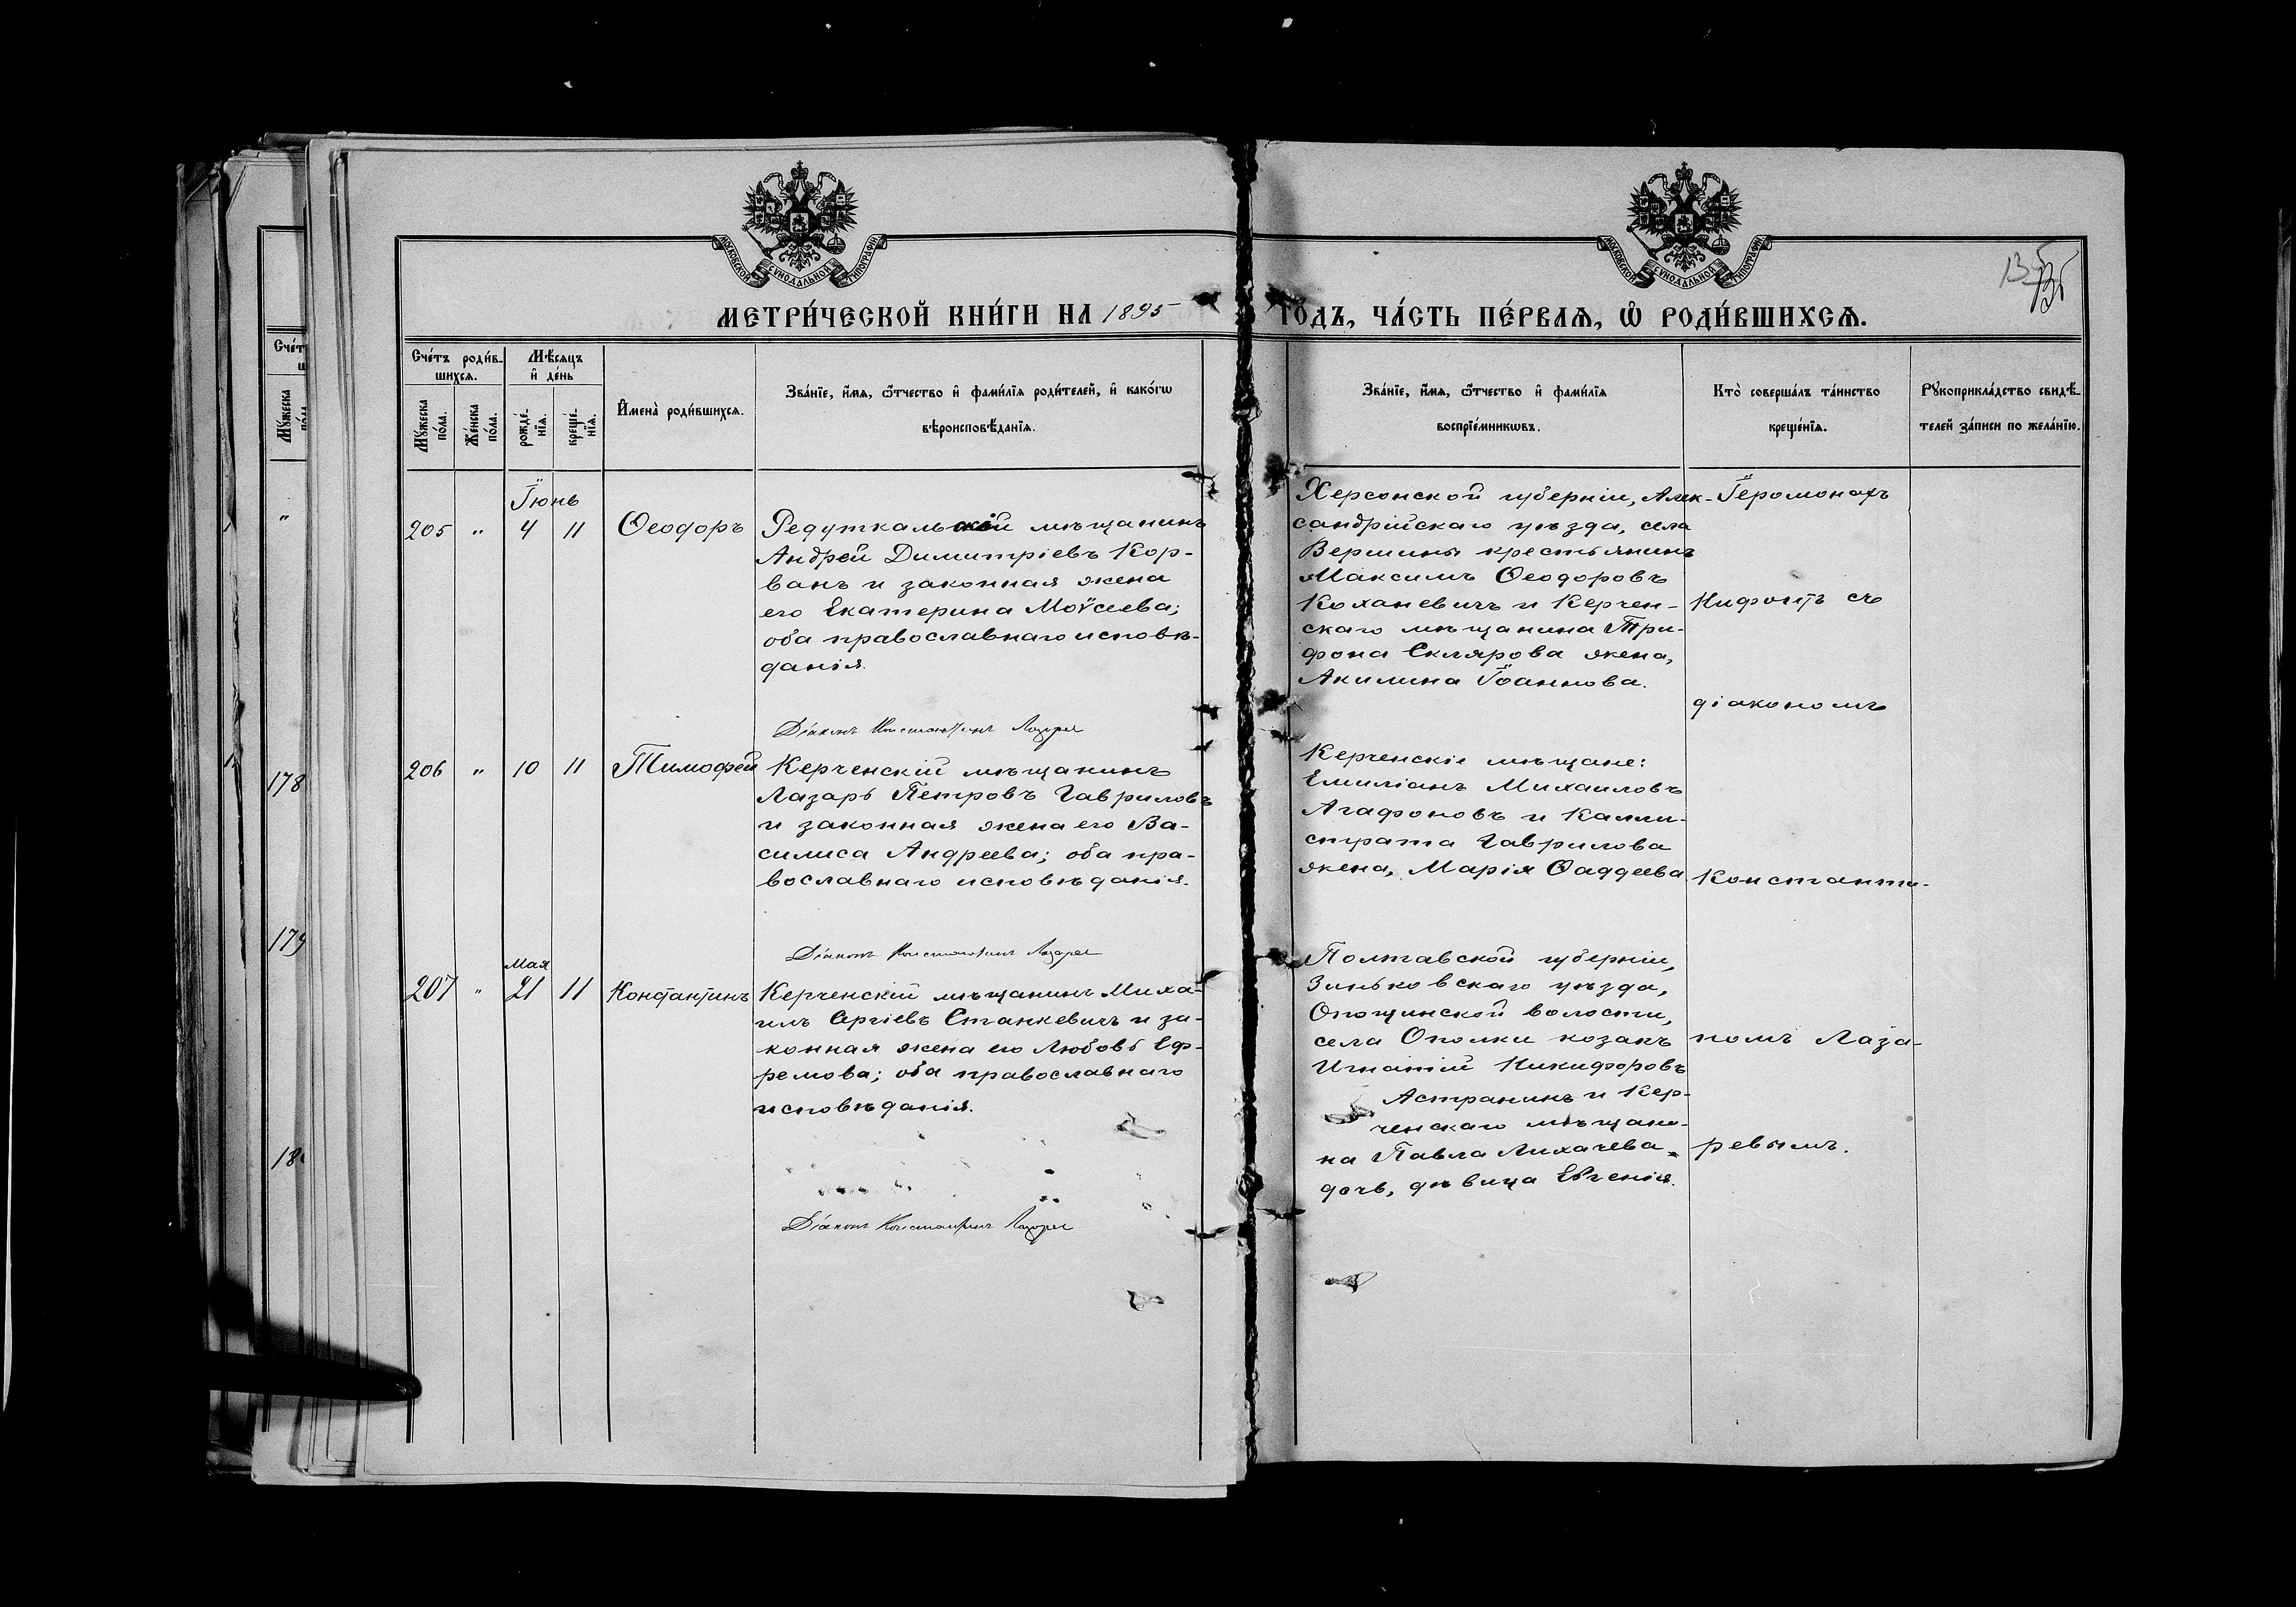 МОСКОВСКОЙ СѴНОДАЛЬНОЙ ТИПОГРАФІИ
МОСКОВСКОЙ СѴНОДАЛЬНОЙ ТИПОГРАФІИ
135
МЕТРИ́ЧЕСКОЙ КНИ́ГИ НА 1895 ГО́ДЪ, ЧА́СТЬ ПЕ́РВАЯ, Ѡ РОДИ́ВШИХСЯ.
Сче́тъ роди́в-
шихся.
Мѣ́сяцъ
и҆ де́нь
Мꙋ́жеска
по́ла.
Же́нска
по́ла.
рожде́-
нїѧ.
креще́-
нїѧ.
И҆мена̀ роди́вшихсѧ.
Зва́нїе, и҆́мѧ, ѻ҆́тчество и҆ фами́лїѧ роди́телей, и҆ како́гѡ
вѣроисповѣ́данїѧ.
Зва́нїе, и҆́мѧ, ѻ҆́тчество и҆ фами́лїѧ
воспрїе́мникѡвъ.
Кто̀ соверша́лъ та́инство
креще́нїѧ.
Рꙋкоприкла́дство свидѣ́-
телей за́писи по жела́нїю.
Іюнь
205 " 4 11 Ѳеодоръ
Редуткальскій мѣщанинъ
Андрей Димитріевъ Кор-
ванъ и законная жена
его Екатерина Моѵсеева;
оба православнаго исповѣ-
данія.
Діаконъ Константинъ Лазарев
Херсонской губерніи, Алек-
сандрійскаго уѣзда, села
Вершины крестьянинъ
Максимъ Ѳеодоровъ
Коханевичъ и Керчен-
скаго мѣщанина Три-
фона Склярова жена,
Акилина Іоаннова.
Іеромонахъ
Нифонтъ съ
діакономъ
206 " 10 11 Тимофей
Керченскій мѣщанинъ
Лазарь Петровъ Гавриловъ
и законная жена его Ва-
силиса Андреева; оба пра-
вославнаго исповѣданія.
Діаконъ Константинъ Лазарев
Керченскіе мѣщане:
Емиліанъ Михаиловъ
Агафоновъ и Калли-
страта Гаврилова
жена, Марія Ѳаддеева
Константи-
Мая
207 " 21 11 Константинъ
Керченскій мѣщанинъ Миха-
илъ Сергіевъ Станкевичъ и за-
конная жена его Любовь Еф-
ремова; оба православнаго
исповѣданія.
Діаконъ Константинъ Лазарев
Полтавской губерніи,
Зиньковскаго уѣзда,
Опошинской волости,
села Ополки козакъ
Игнатій Никифоровъ
Астранинъ и Кер-
ченскаго мѣщани-
на Павла Лихачева
дочь, дѣвица Евгенія.
номъ Лаза-
ревымъ.
Сче́т
Мꙋ́жеска
по́ла
"
178
179